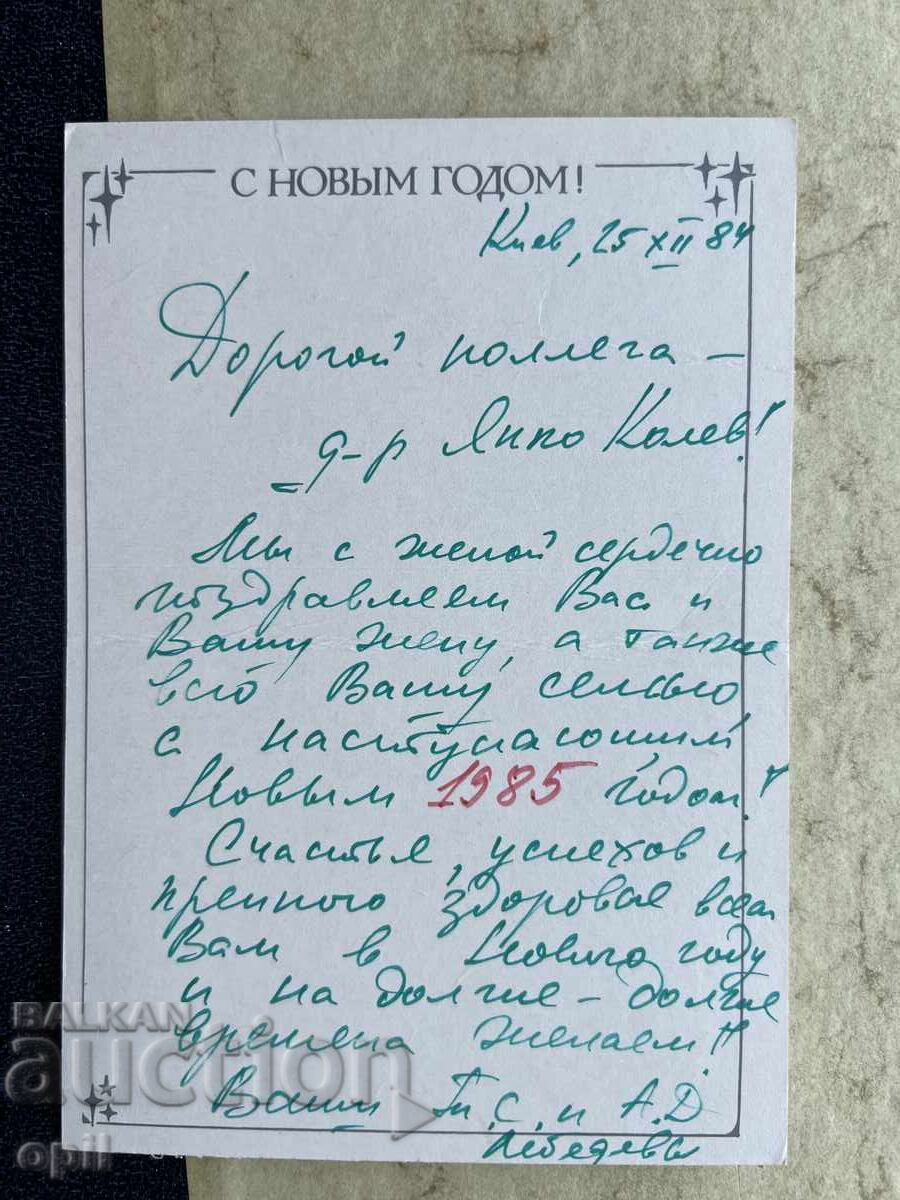 С НОВЫМ ГОДОМ!
Киев, 25 XII 84
Дорогой коллега –
д-р Янко Колев!
Мы с женой сердечно
поздравляем Вас и
Вашу жену, а также
всю Вашу семью
с наступающим
Новым 1985 годом!
Счастья, успехов и
крепкого здоровья всем
Вам в Новом году
и на долгие – долгие
времена желаем!!
Ваши Т.С. и А.Д.
Лебедевы
BALKAN
auction
opil